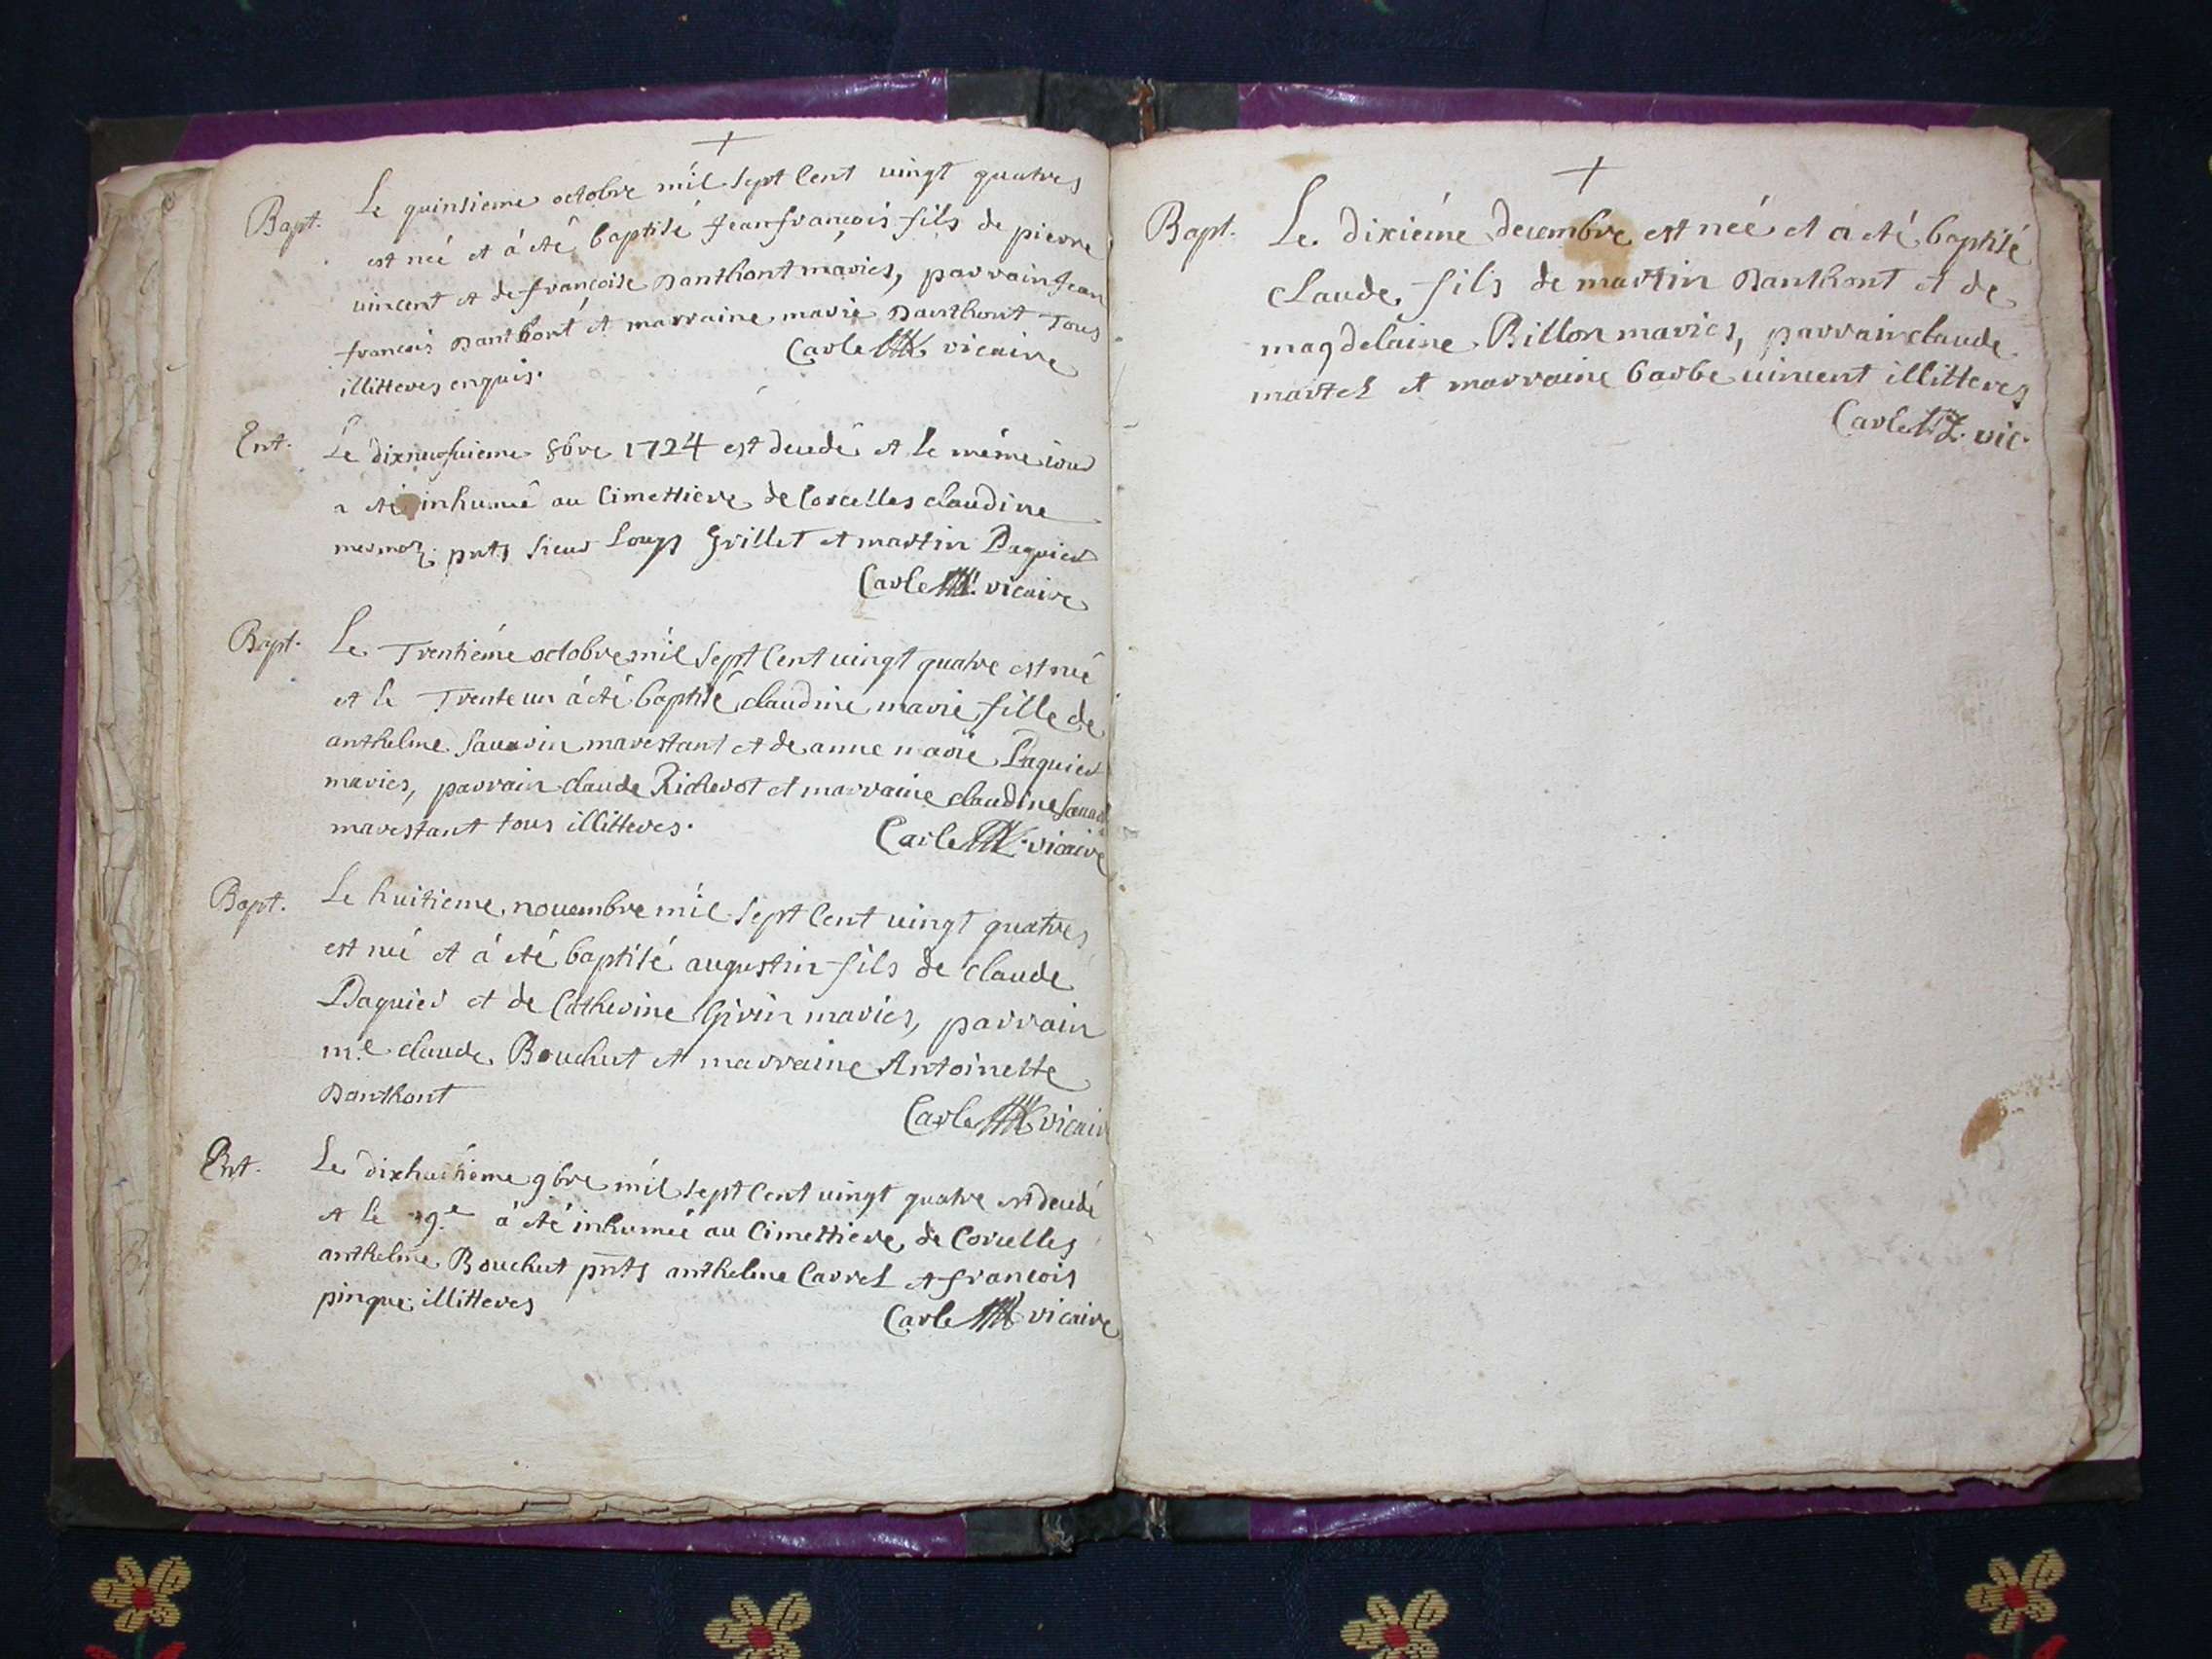 +
Bapt. Le quinsieme octobre mil sept Cent uingt quatres
est neé et á eté baptisé Jeanfrançois fils de pierre
uincent et de françoise Danthont maries, parrain Jean
francois Danthont et marraine marie Danthont Tous
illitteres enquis. Carle vicaire
Ent. Le dixneufuieme 8bre 1724 est decedé et le méme iour
a eté inhumé au Cimettiere de Corcelles claudine
mermoz. pnts sieur Louys Grillet et martin Paquier
Carle vicaire
Bapt. Le Trentiéme octobre mil sept Cent uingt quatre est neé
et le Trenteun á eté baptisé claudine marie fille de
anthelme marestant et de anne marie Paquier
maries, parrain claude Richerot et marraine claudine
marestant tous illitteres. Carle vicaire
Bapt. Le huitieme nouembre mil sept Cent uingt quatres
est neé et á eté baptisé augustin fils de claude
Paquier et de Catherine Girin maries, parrain
m.e claude Bouchut et marraine Antoinette
Danthont Carle vicair
Ent. Le dixhuitiéme 9bre mil sept Cent uingt quatre est decedé
et le 19.e á eté inhumeé au Cimettiere de Corcelles
anthelme Bouchut pnts anthelme Carrel et francois
pinque illitteres Carle vicaire
+
Bapt. Le dixiéme decembre est neé et a eté baptisé
Claude fils de martin Danthont et de
magdelaine Billon maries, parrain claude
martel et marraine barbe uincent illitteres
Carle vic.